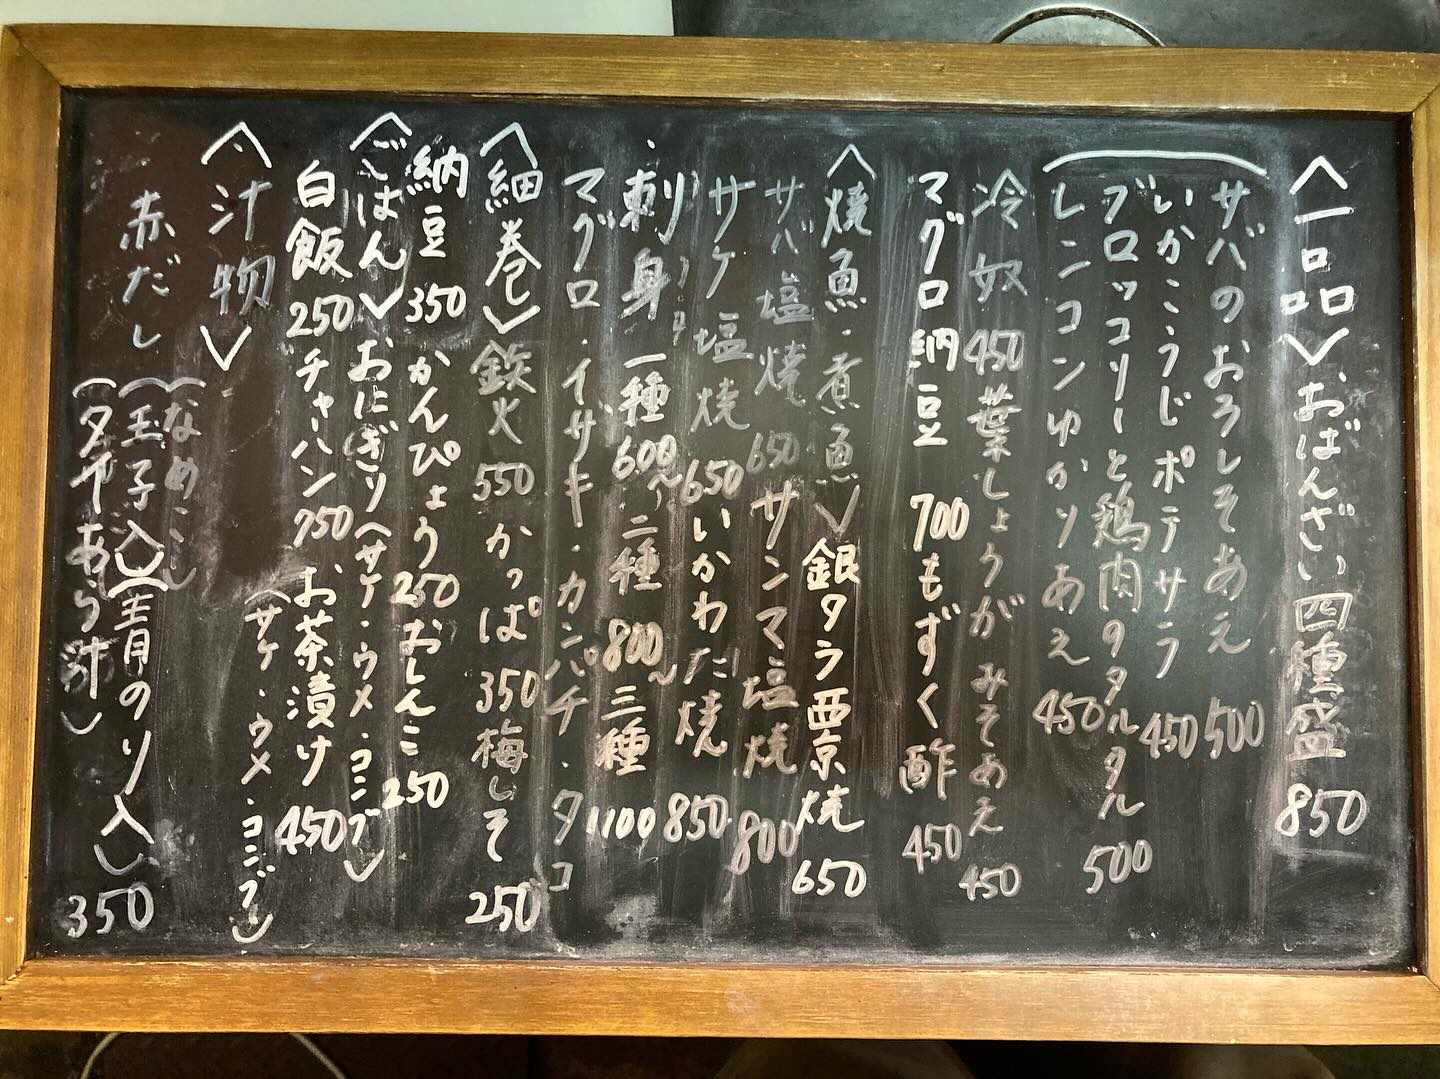 〈一品〉おばんざい四種盛 850
サバのおろしそあえ 500
いかこうじポテサラ 450
ブロッコリーと鶏肉のタルタル 500
レンコンゆかりあえ 450
冷奴 450 葉しょうがみそあえ 450
マグロ納豆 700 もずく酢 450
〈焼魚・煮魚〉銀タラ西京焼 650
サバ塩焼 650 サンマ塩焼 800
サケ塩焼 650 いかわた焼 850
刺身 一種 600〜 二種 800〜 三種 1100
マグロ・イサキ・カンパチ・タコ
〈細巻〉鉄火 550 かっぱ 350 梅しそ 250
納豆 350 かんぴょう 250 おしんこ 250
〈ごはん〉おにぎり（サケ・ウメ・コンブ）
白飯 250 チャーハン 750 お茶漬け 450
（サケ・ウメ・コンブ）
〈汁物〉
赤だし（なめこ）
（玉子入）（青のり入）
（タイあら汁） 350